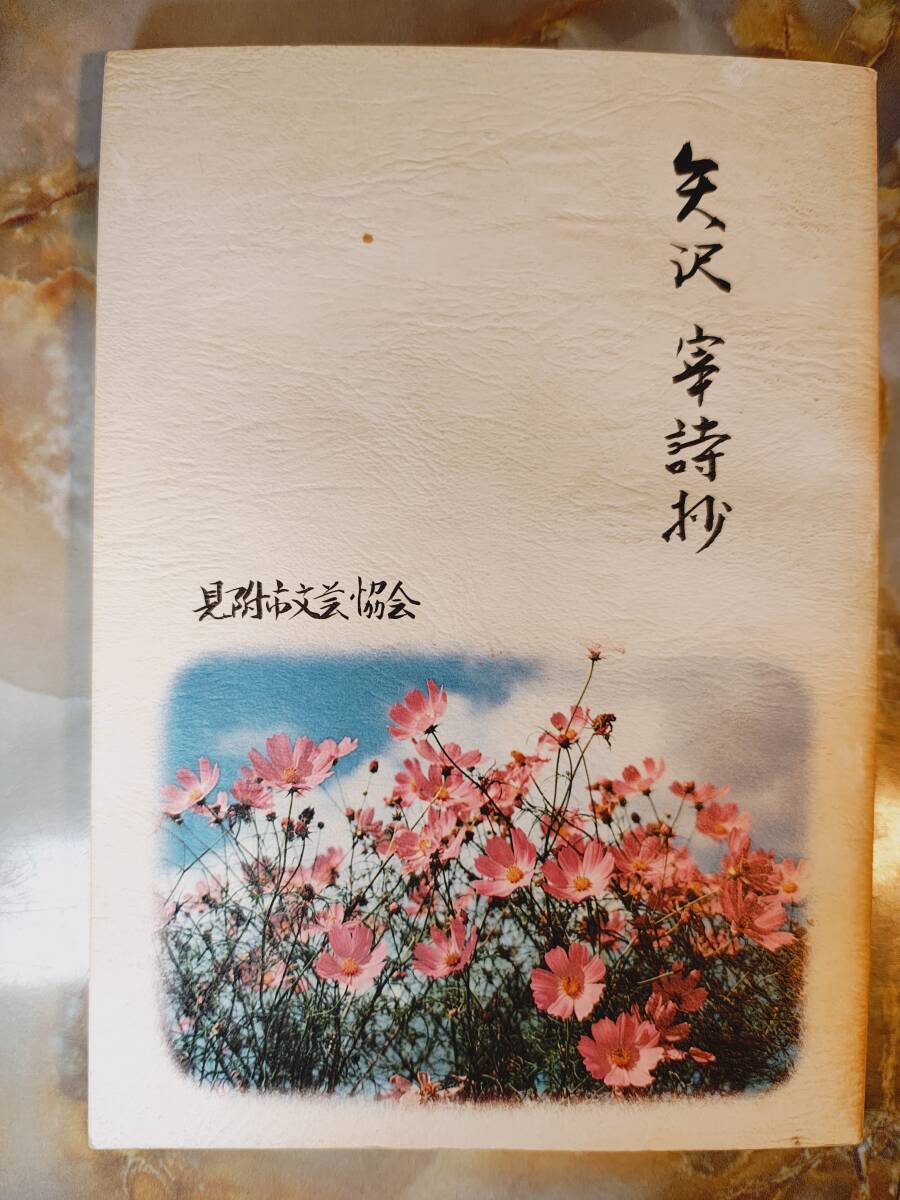 矢沢宰詩抄
見附市文芸協会